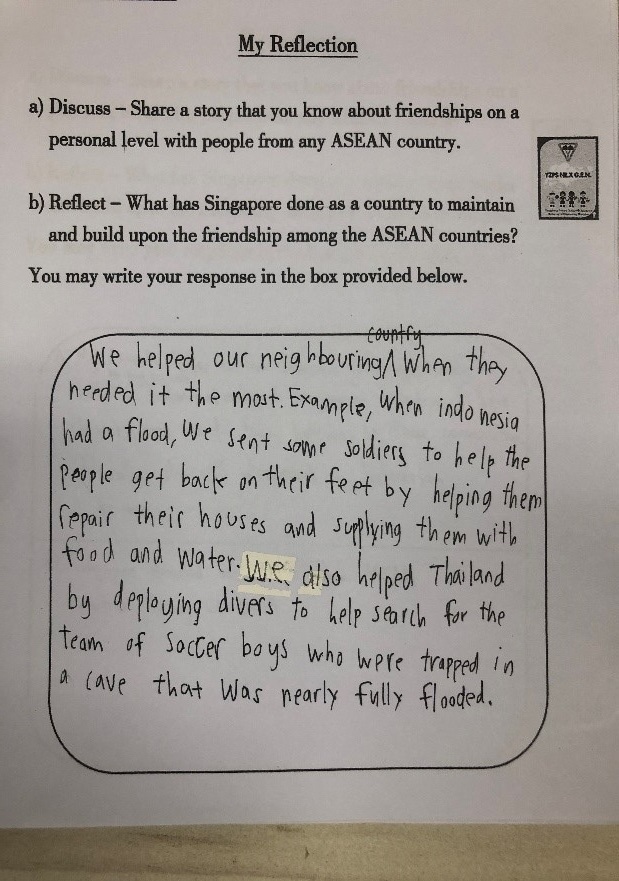 My Reflection
a) Discuss – Share a story that you know about friendships on a
personal level with people from any ASEAN country.
b) Reflect – What has Singapore done as a country to maintain
and build upon the friendship among the ASEAN countries?
You may write your response in the box provided below.
country
We helped our neighbouring/\ When they
needed it the most. Example, When indonesia
had a flood, We sent some soldiers to help the
people get back on their feet by helping them
repair their houses and supplying them with
food and water. We also helped Thailand
by deploying divers to help search for the
team of soccer boys who were trapped in
a cave that was nearly fully flooded.